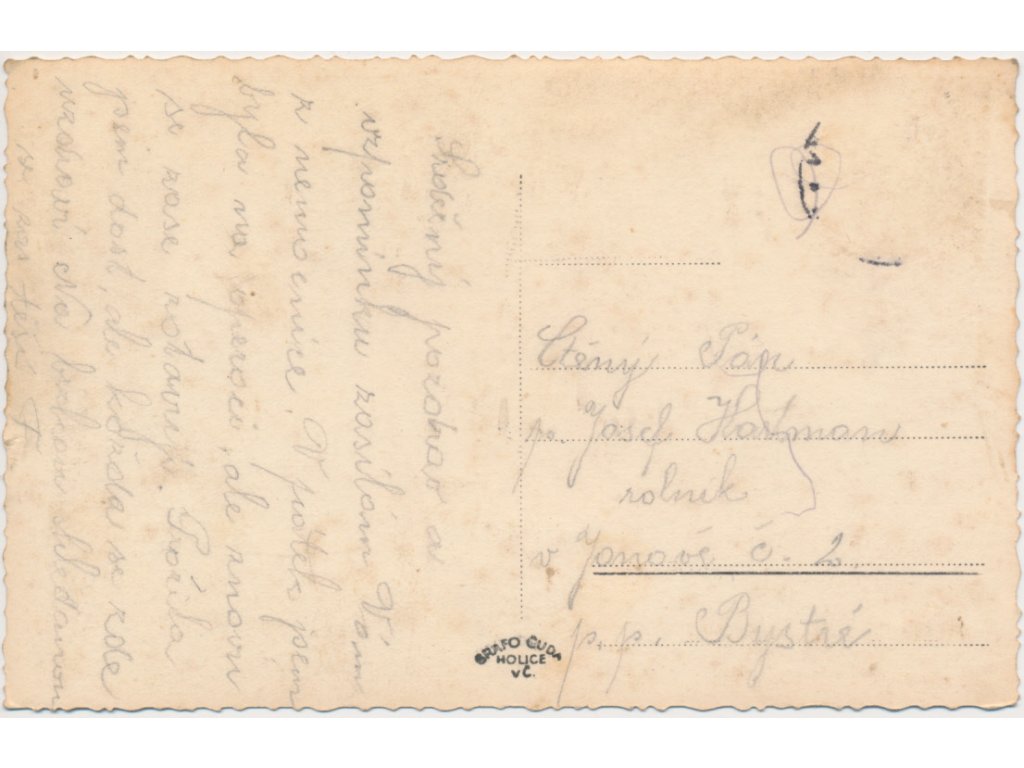 Srdečný pozdrav a
vzpomínku zasílám Vám
z nemocnice. V pátek jsem
byla na operaci, ale znovu
se zase zotavuji. Prožila
jsem dost, ale každá se zde
Na brzkém shledanou
se těší
Ctěný Pán
p. Josef Hartman
rolník
v Janově č. 2.
p.p. Bystré
GRAFO ČUDA
HOLICE
v Č.